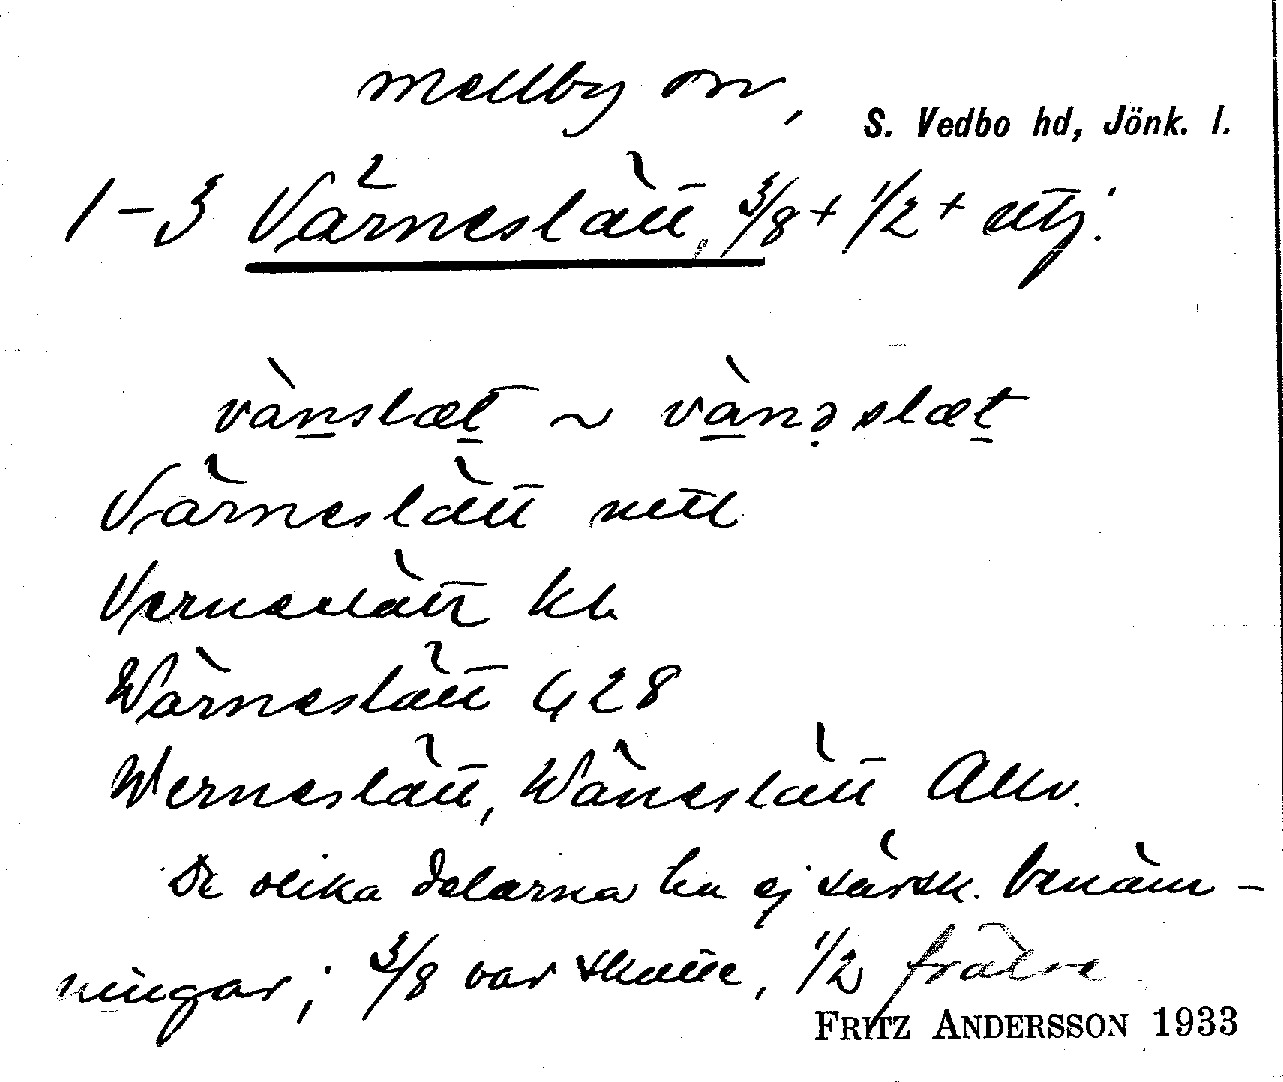 Mellby sn, S. Vedbo hd, Jönk. l.
1-3 Värneslätt, 3/8 + 1/2 + utj.
vànslæt ~ vànəslæt
Värneslätt uttl
Verneslätt kb.
Wärneslätt G, 28
Werneslätt, Wäneslätt Allm.
De olika delarna ha ej särsk. benäm-
ningar; 3/8 var skatte, 1/2 frälse
FRITZ ANDERSSON 1933